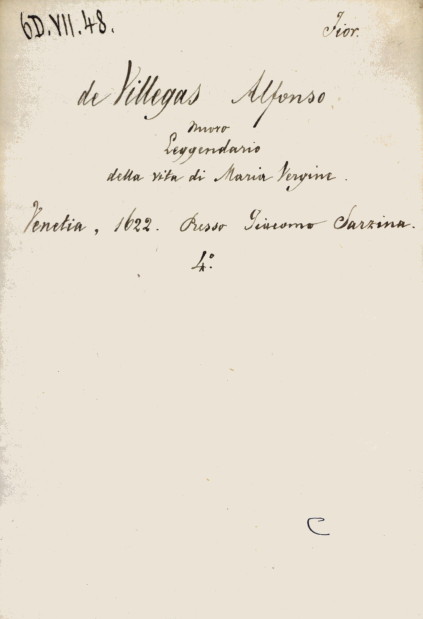 6D.VII.48. Fior.
de Villegas Alfonso
nuovo
Leggendario
della vita di Maria Vergine.
Venetia, 1622. Presso Giacomo Sarzina.
4.º
C